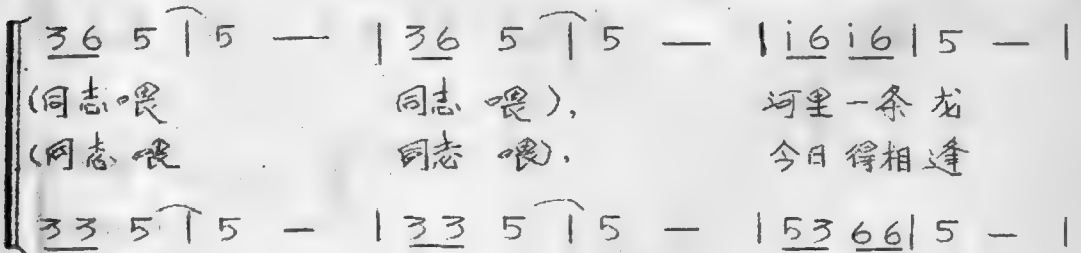 3 6 5 | 5 — | 3 6 5 | 5 — | i 6 i 6 | 5 — |
(同志喂 同志 喂), 河里一条龙
(同志喂 同志 喂), 今日得相逢
3 3 5 | 5 — | 3 3 5 | 5 — | 5 3 6 6 | 5 — |